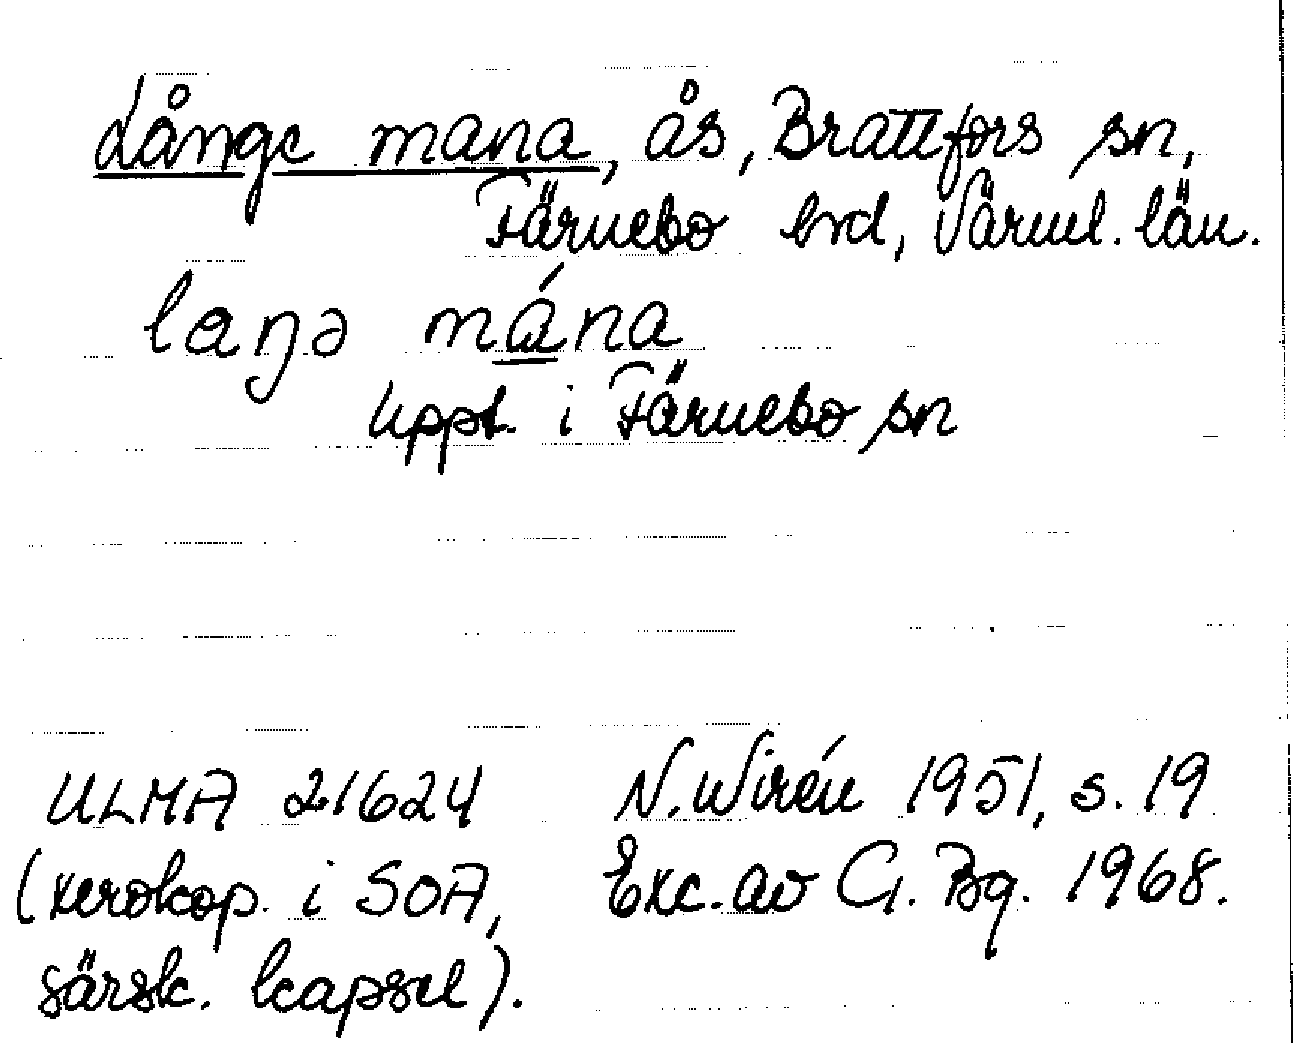 Långe mana, ås, Brattfors sn,
Färnebo hrd, Värml. län.
laŋə mána
Uppt. i Färnebo sn
ULMA 21624 N. Wirén 1951, s. 19
(xerokop. i SOA, Exc. av G. Bg. 1968.
särsk. kapsel).